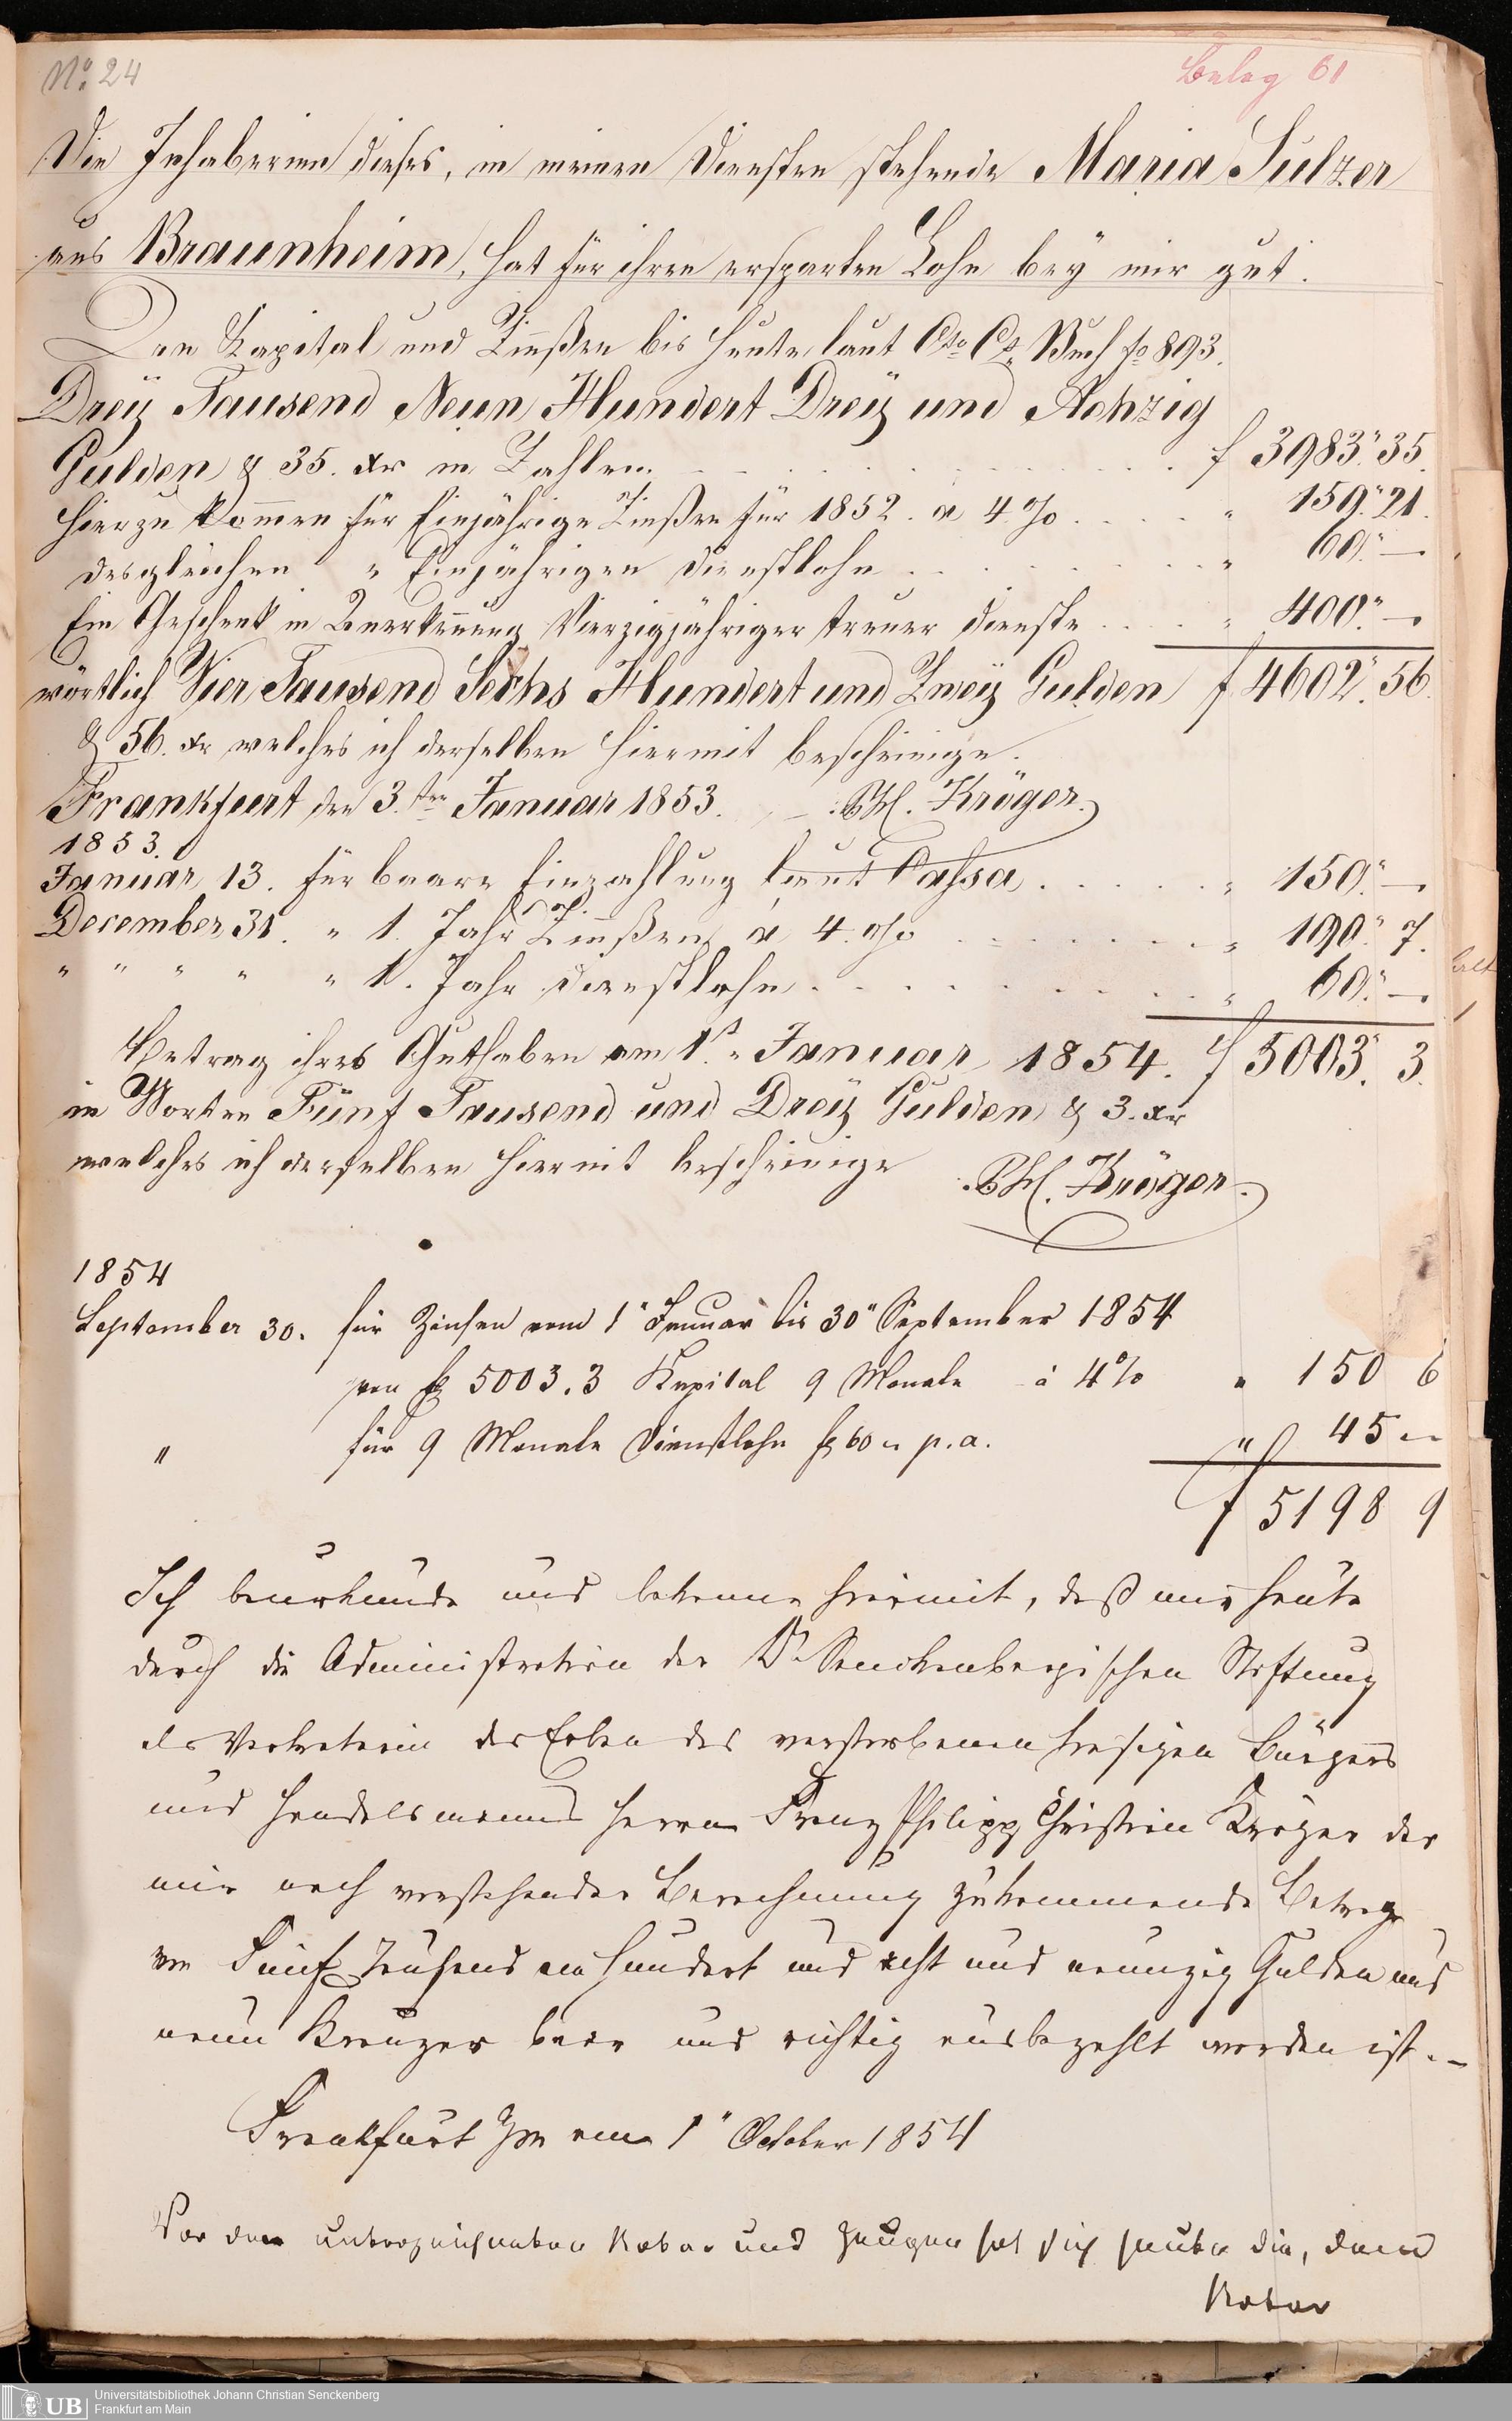 No. 24
Beleg 61
Die Inhaberinn dieses, in meinen Diensten stehende Maria Sulzer
aus Braunheim, hat für ihren ersparten Lohn bey mir gut.
Den Kapital und Zinßen bis Heute laut Cto Ct Buch fo 893.
Dreÿ Tausend Neun Hundert Dreÿ und Achzig
Gulden & 35. xr in Zahlen . . . . . f 3983." 35.
Hierzu kommen für Einjährige Zinßen für 1852. a 4 % . . . . " 159." 21.
desgleichen " Einjährigen Dienstlohn . . . . . " 60." —
Ein Geschenk in Anerkennung Vierzigjähriger treuer Dienste . . . . " 400." —
wörtlich Vier Tausend Sechs Hundert und Zweÿ Gulden f 4602." 56.
& 56. xr welches ich derselben hiermit bescheinige.
Frankfurt den 3.ten Januar 1853. Kröger.
1853.
Januar 13. für baare Einzahlung laut Cassa . . . . . " 150." —
December 31. " 1. Jahr Zinßen, à 4. % . . . . . " 190." 7.
" " " " " 1. Jahr Dienstlohn . . . . . " 60." —
Betrag ihres Guthaben am 1t. Januar 1854. f 5003." 3.
in Worten Fünf Tausend und Dreÿ Gulden & 3. xr
welches ich derselben hiermit bescheinige Kröger.
1854
September 30. für Zinsen vom 1" Januar bis 30" September 1854
von f 5003.3 Kapital 9 Monate à 4% " 150 6
" für 9 Monate Dienstlohn f 60 " p.a. " 45 "
f 5198 9
Ich beurkunde und bekenne hiermit, daß mir heute
durch die Administration der Dr Senckenbergischen Stiftung
als Vertreterin der Erben des verstorbenen hiesigen Bürgers
und Handelsmanns Herrn Franz Philipp Christian Kröger der
mir nach vorstehender Berechnung zukommende Betrag
von Fünf Tausend ein hundert und acht und neunzig Gulden und
neun Kreuzer baar und richtig ausbezahlt worden ist. —
Frankfurt am 1" October 1854
Vor dem unterzeichneten Notar und Zeugen hat sich heute die, dem
Notar
Universitätsbibliothek Johann Christian Senckenberg
Frankfurt am Main
UB